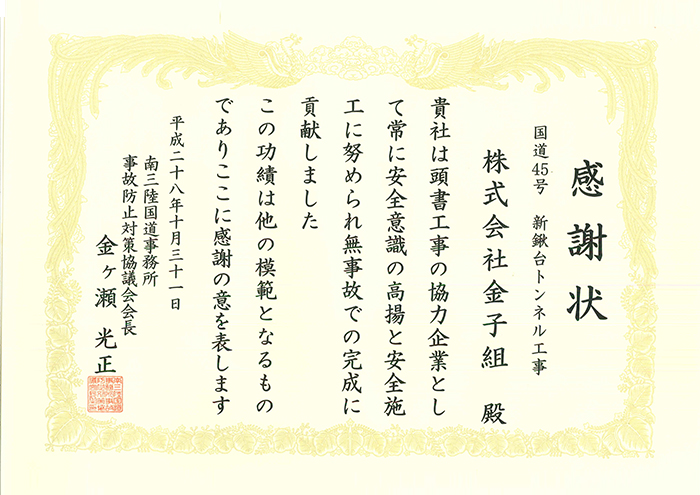 感謝状
国道45号　新鍬台トンネル工事
株式会社金子組　殿
貴社は頭書工事の協力企業とし
て常に安全意識の高揚と安全施
工に努められ無事故での完成に
貢献しました
この功績は他の模範となるもの
でありここに感謝の意を表します
平成二十八年十月三十一日
南三陸国道事務所
事故防止対策協議会会長
金ヶ瀬　光正